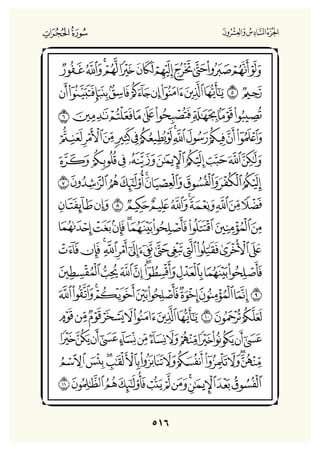 الجُزْءُ السَّادِسُ وَالعِشْرُونَ
سُورَةُ الحُجُرَاتِ
وَلَوْ أَنَّهُمْ صَبَرُوا۟ حَتَّىٰ تَخْرُجَ إِلَيْهِمْ لَكَانَ خَيْرًا لَّهُمْ ۚ وَٱللَّهُ غَفُورٌ
رَّحِيمٌ ٥ يَٰٓأَيُّهَا ٱلَّذِينَ ءَامَنُوٓا۟ إِن جَآءَكُمْ فَاسِقٌۢ بِنَبَإٍ فَتَبَيَّنُوٓا۟ أَن
تُصِيبُوا۟ قَوْمًۢا بِجَهَٰلَةٍ فَتُصْبِحُوا۟ عَلَىٰ مَا فَعَلْتُمْ نَٰدِمِينَ ٦
وَٱعْلَمُوٓا۟ أَنَّ فِيكُمْ رَسُولَ ٱللَّهِ ۚ لَوْ يُطِيعُكُمْ فِى كَثِيرٍ مِّنَ ٱلْأَمْرِ لَعَنِتُّمْ
وَلَٰكِنَّ ٱللَّهَ حَبَّبَ إِلَيْكُمُ ٱلْإِيمَٰنَ وَزَيَّنَهُۥ فِى قُلُوبِكُمْ وَكَرَّهَ
إِلَيْكُمُ ٱلْكُفْرَ وَٱلْفُسُوقَ وَٱلْعِصْيَانَ ۚ أُو۟لَٰٓئِكَ هُمُ ٱلرَّٰشِدُونَ ٧
فَضْلًا مِّنَ ٱللَّهِ وَنِعْمَةً ۚ وَٱللَّهُ عَلِيمٌ حَكِيمٌ ٨ وَإِن طَآئِفَتَانِ
مِنَ ٱلْمُؤْمِنِينَ ٱقْتَتَلُوا۟ فَأَصْلِحُوا۟ بَيْنَهُمَا ۖ فَإِنۢ بَغَتْ إِحْدَىٰهُمَا
عَلَى ٱلْأُخْرَىٰ فَقَٰتِلُوا۟ ٱلَّتِى تَبْغِى حَتَّىٰ تَفِىٓءَ إِلَىٰٓ أَمْرِ ٱللَّهِ ۚ فَإِن فَآءَتْ
فَأَصْلِحُوا۟ بَيْنَهُمَا بِٱلْعَدْلِ وَأَقْسِطُوٓا۟ ۖ إِنَّ ٱللَّهَ يُحِبُّ ٱلْمُقْسِطِينَ
٩ إِنَّمَا ٱلْمُؤْمِنُونَ إِخْوَةٌ فَأَصْلِحُوا۟ بَيْنَ أَخَوَيْكُمْ ۚ وَٱتَّقُوا۟ ٱللَّهَ
لَعَلَّكُمْ تُرْحَمُونَ ١٠ يَٰٓأَيُّهَا ٱلَّذِينَ ءَامَنُوا۟ لَا يَسْخَرْ قَوْمٌ مِّن قَوْمٍ
عَسَىٰٓ أَن يَكُونُوا۟ خَيْرًا مِّنْهُمْ وَلَا نِسَآءٌ مِّن نِّسَآءٍ عَسَىٰٓ أَن يَكُنَّ خَيْرًا
مِّنْهُنَّ ۖ وَلَا تَلْمِزُوٓا۟ أَنفُسَكُمْ وَلَا تَنَابَزُوا۟ بِٱلْأَلْقَٰبِ ۖ بِئْسَ ٱلِٱسْمُ
ٱلْفُسُوقُ بَعْدَ ٱلْإِيمَٰنِ ۚ وَمَن لَّمْ يَتُبْ فَأُو۟لَٰٓئِكَ هُمُ ٱلظَّٰلِمُونَ ١١
٥١٦